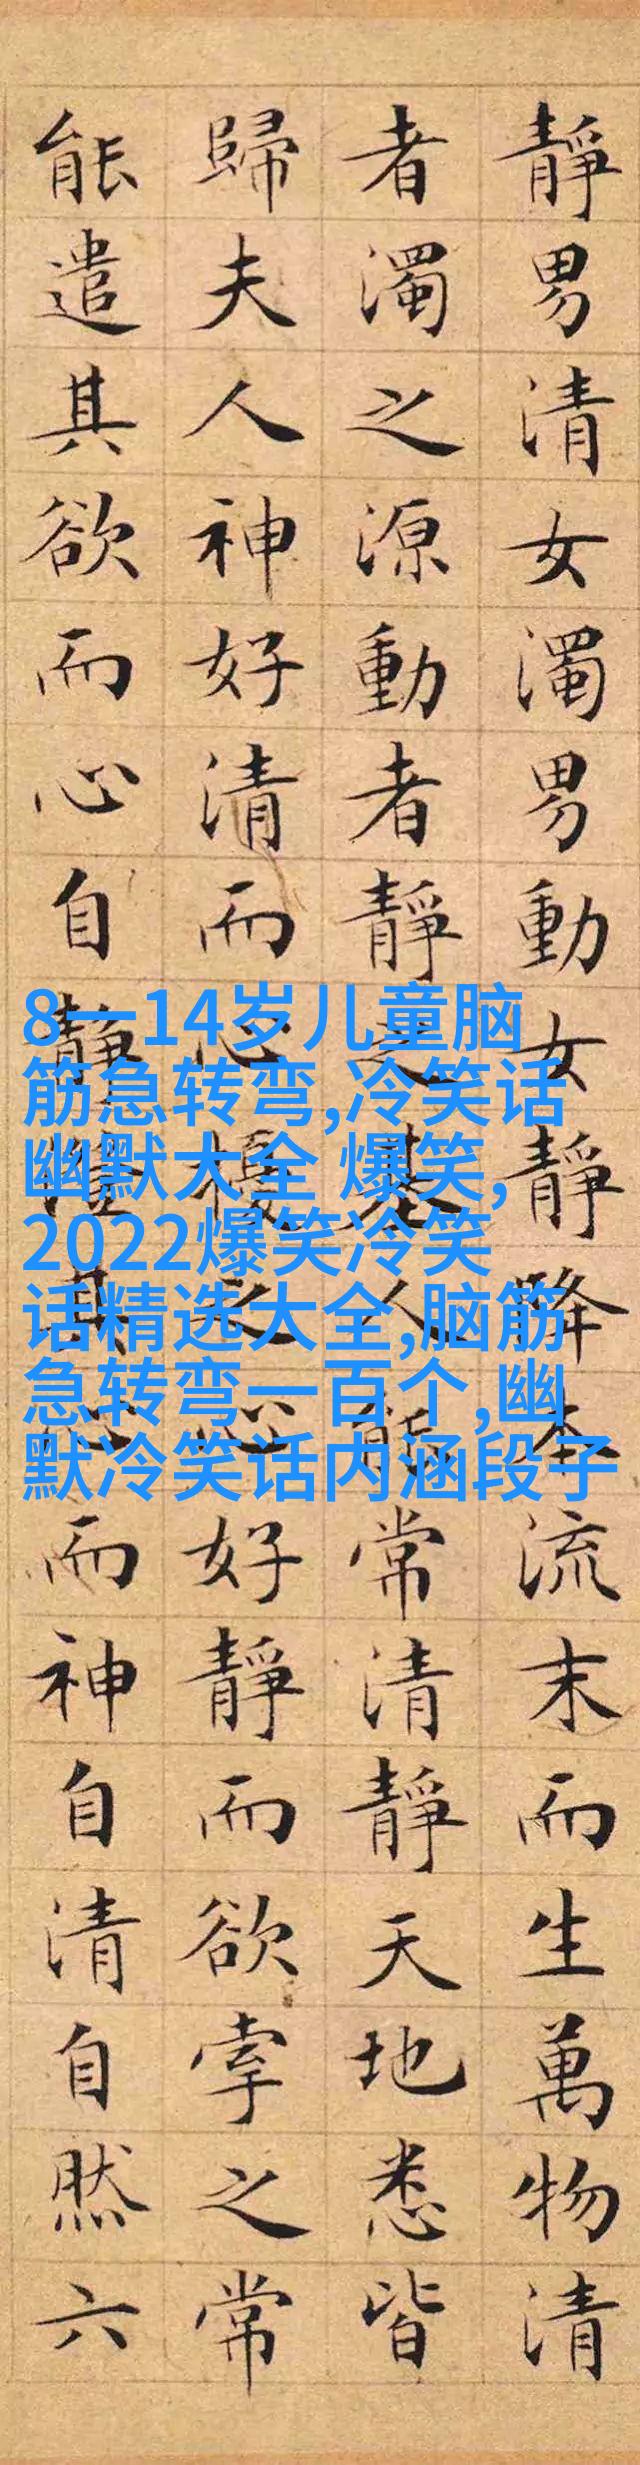 靜男清女濁男動女靜降本流末而生萬物清
者濁之源動者靜之基人能常清靜天地悉皆
歸夫人神好清而心擾之心好靜而欲牽之常
能遣其欲而心自靜澄其心而神自清自然六
8一14岁儿童脑
筋急转弯,冷笑话
幽默大全 爆笑,
2022爆笑冷笑
话精选大全,脑筋
急转弯一百个,幽
默冷笑话内涵段子